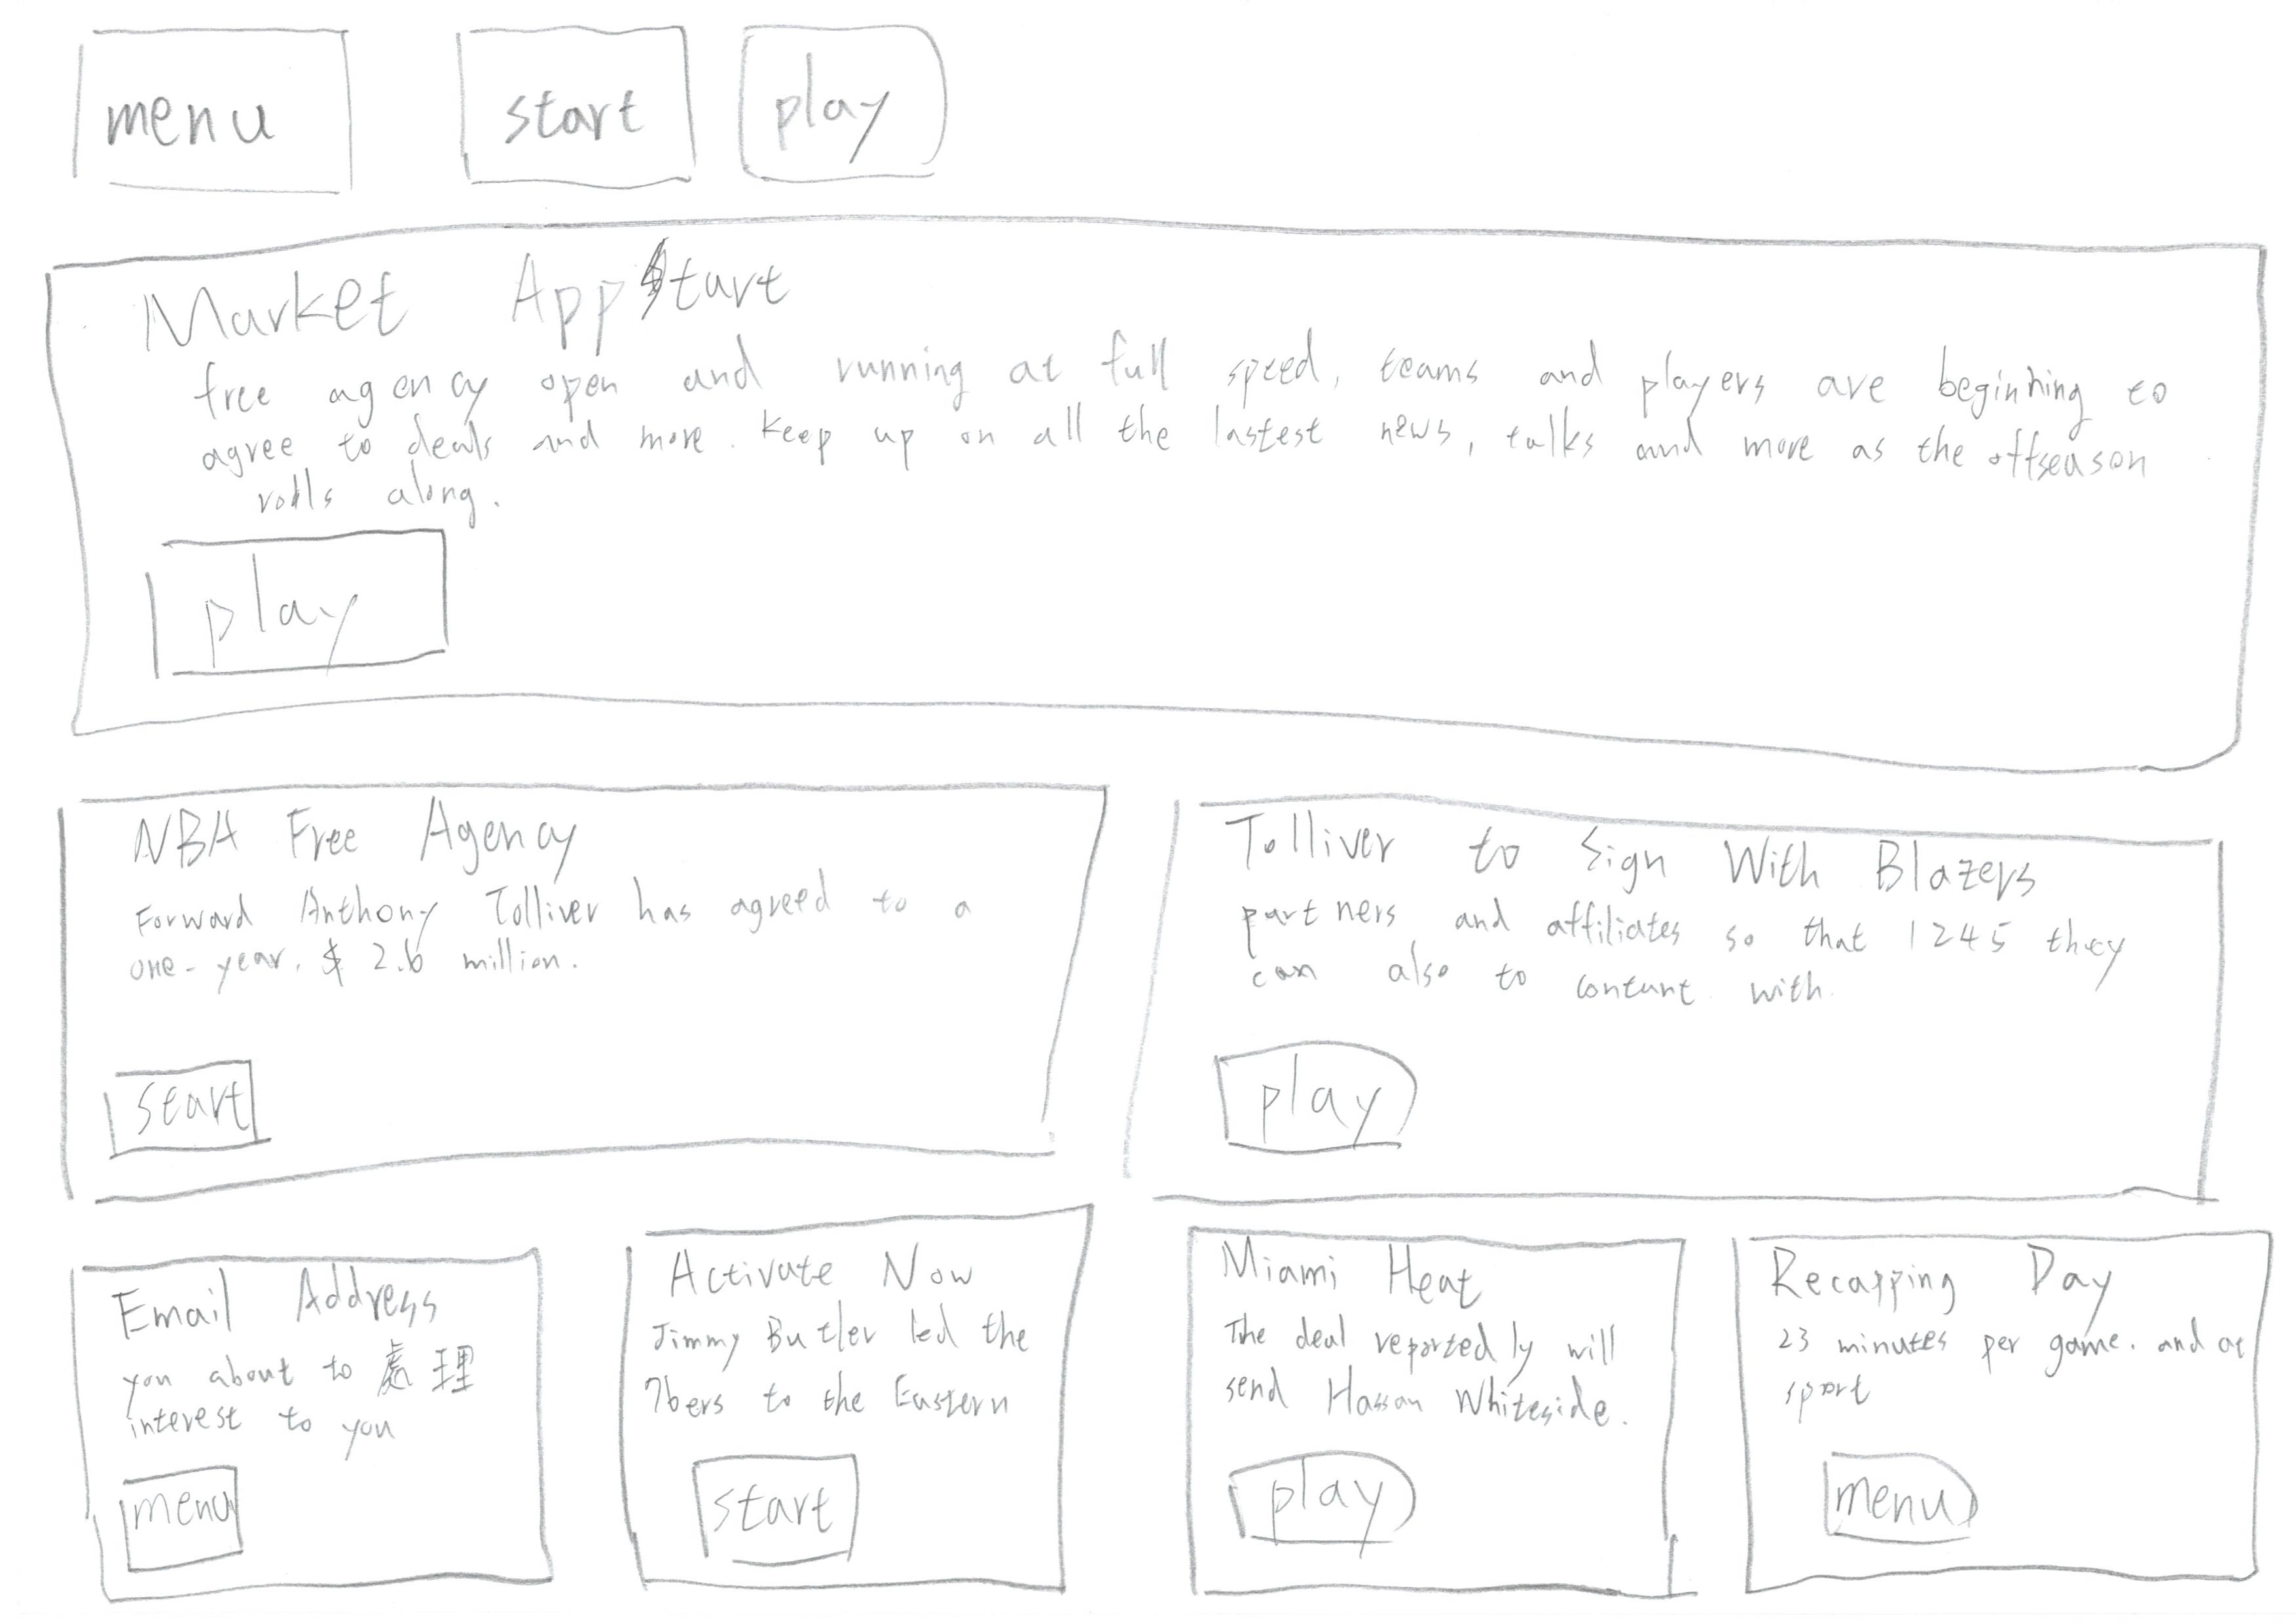 menu start play
Market AppStart
free agency open and running at full speed, teams and players are beginning to
agree to deals and more. keep up on all the lastest news, talks and more as the offseason
rolls along.
play
NBA Free Agency
Forward Anthony Tolliver has agreed to a
one-year, $ 2.6 million.
start
Tolliver to Sign With Blazers
partners and affiliates so that 1245 they
can also to contant with.
play
Email Address
you about to 處理
interest to you
menu
Activate Now
Jimmy Butler led the
76ers to the Eastern
start
Miami Heat
The deal reportedly will
send Hassan Whiteside.
play
Recapping Day
23 minutes per game. and at
sport
menu